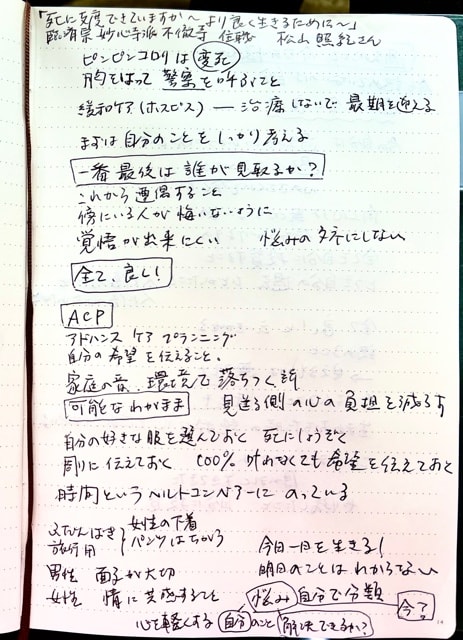 「死に支度できていますか〜より良く生きるために〜」
臨済宗 妙心寺派 不徹寺 住職 松山照紀さん
ピンピンコロリは変死
胸をはって 警察を呼ぶこと
緩和ケア(ホスピス) ― 治療しないで 最期を迎える
まずは自分のことをしっかり考える
一番最後は誰が見取るか?
これから遭遇すること
傍にいる人が悔いないように
覚悟が出来にくい 悩みのタネにしない
全て、良し!
ACP
アドバンス ケア プランニング
自分の希望を伝えること、
家庭の音、環境で落ちつく
可能なわがまま 見送る側の心の負担を減らす
自分の好きな服を選んでおく 死にしょうぞく
周りに伝えておく 100% 叶わなくても希望を伝えておく
時間というベルトコンベアーにのっている
旅行用
女性の下着
パンツはちがう
今日一日を生きる!
明日のことはわからない
男性 面子が大切
女性 情に共感すること
悩み 自分で分類
今?
心を軽くする 自分のこと 解決できるか?